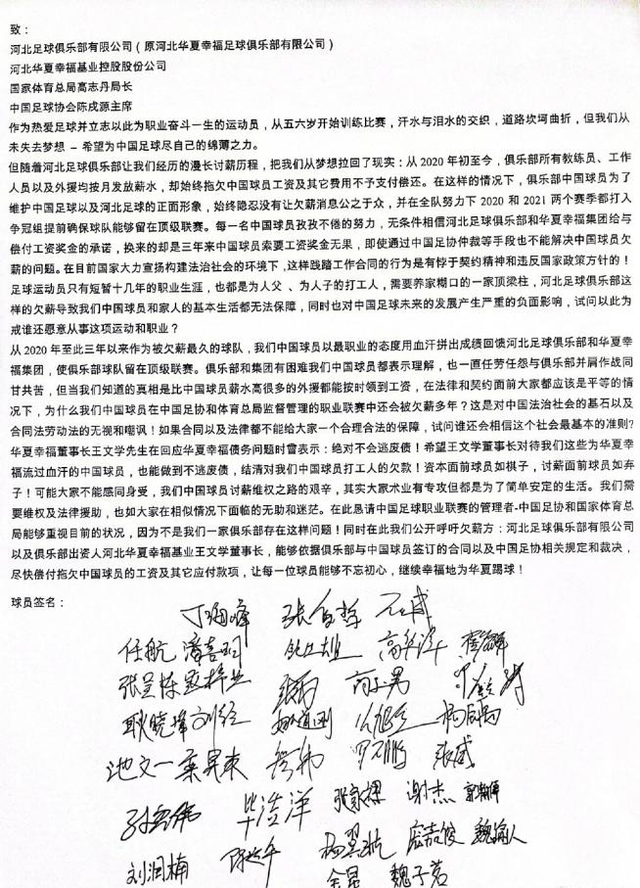 致：
河北足球俱乐部有限公司（原河北华夏幸福足球俱乐部有限公司）
河北华夏幸福基业控股股份公司
国家体育总局高志丹局长
中国足球协会陈戌源主席
作为热爱足球并立志以此为职业奋斗一生的运动员，从五六岁开始训练比赛，汗水与泪水的交织，道路坎坷曲折，但我们从
未失去梦想 – 希望为中国足球尽自己的绵薄之力。
但随着河北足球俱乐部让我们经历的漫长讨薪历程，把我们从梦想拉回了现实：从 2020 年初至今，俱乐部所有教练员、工作
人员以及外援均按月发放薪水，却始终拖欠中国球员工资及其它费用不予支付偿还。在这样的情况下，俱乐部中国球员为了
维护中国足球以及河北足球的正面形象，始终隐忍没有让欠薪消息公之于众，并在全队努力下 2020 和 2021 两个赛季都打入
争冠组提前确保球队能够留在顶级联赛。每一名中国球员孜孜不倦的努力，无条件相信河北足球俱乐部和华夏幸福集团给与
偿付工资奖金的承诺，换来的却是三年来中国球员索要工资奖金无果，即使通过中国足协仲裁等手段也不能解决中国球员欠
薪的问题。在目前国家大力宣扬构建法治社会的环境下，这样践踏工作合同的行为是有悖于契约精神和违反国家政策方针的！
足球运动员只有短暂十几年的职业生涯，也都是为人父 、为人子的打工人，需要养家糊口的一家顶梁柱，河北足球俱乐部这
样的欠薪导致我们中国球员和家人的基本生活都无法保障，同时也对中国足球未来的发展产生严重的负面影响，试问以此为
戒谁还愿意从事这项运动和职业？
从 2020 年至此三年以来作为被欠薪最久的球队，我们中国球员以最职业的态度用血汗拼出成绩回馈河北足球俱乐部和华夏
幸福集团，使俱乐部球队留在顶级联赛。俱乐部和集团有困难我们中国球员都表示理解，也一直任劳任怨与俱乐部并肩作战同
甘共苦，但当我们知道的真相是比中国球员薪水高很多的外援都能按时领到工资，在法律和契约面前大家都应该是平等的情
况下，为什么我们中国球员在中国足协和体育总局监督管理的职业联赛中还会被欠薪多年？这是对中国法治社会的基石以及
合同法劳动法的无视和嘲讽！如果合同以及法律都不能给大家一个合理合法的保障，试问谁还会相信这个社会最基本的准则?
华夏幸福董事长王文学先生在回应华夏幸福债务问题时曾表示：绝对不会逃废债！希望王文学董事长对待我们这些为华夏幸
福流过血汗的中国球员，也能做到不逃废债，结清对我们中国球员打工人的欠款！资本面前球员如棋子，讨薪面前球员如弃
子！可能大家不能感同身受，我们中国球员讨薪维权之路的艰辛，其实大家术业有专攻但都是为了简单安定的生活。我们需
要维权及法律援助，也如大家在相似情况下面临的无助和迷茫。在此恳请中国足球职业联赛的管理者-中国足协和国家体育总
局能够重视目前的状况，因为不是我们一家俱乐部存在这样问题！同时在此我们公开呼吁欠薪方：河北足球俱乐部有限公司
以及俱乐部出资人河北华夏幸福基业王文学董事长，能够依据俱乐部与中国球员签订的合同以及中国足协相关规定和裁决，
尽快偿付拖欠中国球员的工资及其它应付款项，让每一位球员能够不忘初心，继续幸福地为华夏踢球！
球员签名：
丁海峰
任航 潘喜明 高华泽
张呈栋
耿晓峰 刘经
池文一 张威
毕浩洋 张家棋 谢杰
刘润楠 杨翼航 魏子茗